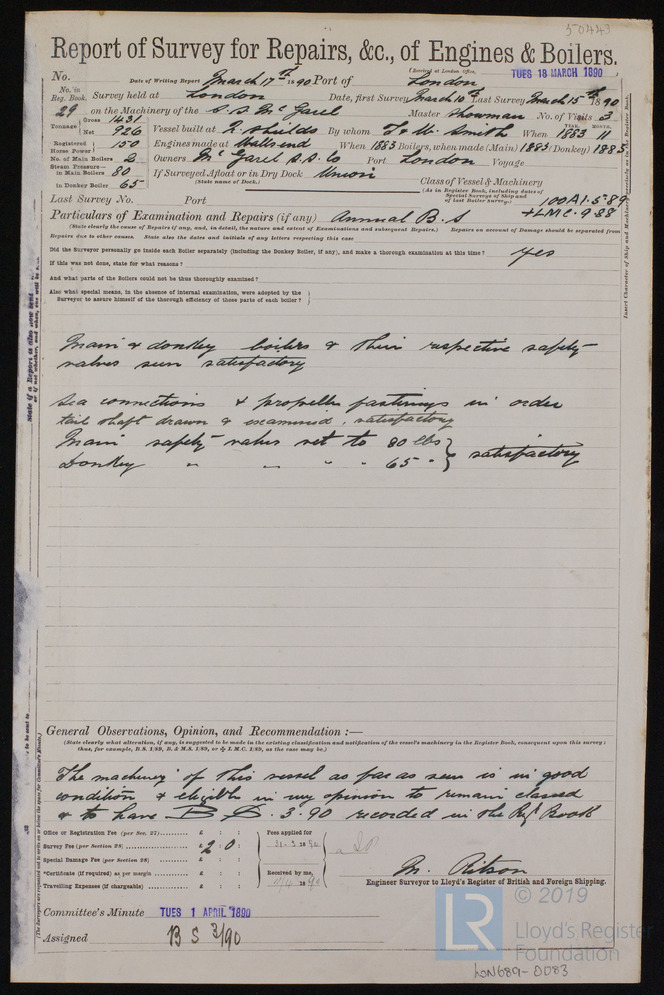 50443
Report of Survey for Repairs, &c., of Engines & Boilers.
(Received at London Office, TUES 18 MARCH 1890
No. Date of Writing Report March 17th 1890 Port of London
No. in Reg. Book. Survey held at London Date, first Survey March 10th Last Survey March 15th 1890
29 on the Machinery of the S.S. McGarel Master Showman No. of Visits 3
Tonnage Gross 1431
Net 926 Vessel built at N. Shields By whom T & W. Smith When YEAR. 1883 MONTH. 10
Registered Horse Power 150 Engines made at Wallsend When 1883 Boilers, when made (Main) 1883 (Donkey) 1883
No. of Main Boilers 2 Owners McGarel S.S. Co Port London Voyage
Steam Pressure— in Main Boilers 80 If Surveyed Afloat or in Dry Dock Union
(State name of Dock.)
in Donkey Boiler 65
Class of Vessel & Machinery
(As in Register Book, including dates of Special Surveys of Ship and of last Boiler Survey.) 100A1.5.89
+LMC.9.88
Last Survey No. Port
Particulars of Examination and Repairs (if any) Annual B.S
(State clearly the cause of Repairs if any, and, in detail, the nature and extent of Examinations and subsequent Repairs.) Repairs on account of Damage should be separated from
Repairs due to other causes. State also the dates and initials of any letters respecting this case
Did the Surveyor personally go inside each Boiler separately (including the Donkey Boiler, if any), and make a thorough examination at this time? Yes
If this was not done, state for what reasons?
And what parts of the Boilers could not be thoroughly examined?
Also what special means, in the absence of internal examination, were adopted by the
Surveyor to assure himself of the thorough efficiency of those parts of each boiler?
Main & donkey boilers & their respective safety
valves seen satisfactory
Sea connections & propeller fastenings in order
tail shaft drawn & examined, satisfactory
Main safety valves set to 80 lbs
Donkey " " " " 65 " } satisfactory
General Observations, Opinion, and Recommendation :—
(State clearly what alteration, if any, is suggested to be made in the existing classification and notification of the vessel's machinery in the Register Book, consequent upon this survey:
thus, for example, B.S. 1/89, B. & M.S. 1/89, or ✠ L.M.C. 1/89, as the case may be.)
The machinery of this vessel as far as seen is in good
condition & eligible in my opinion to remain classed
& to have B S. 3.90 recorded in the Reg Book
Office or Registration Fee (per Sec. 27) £ : :
Survey Fee (per Section 28) £ 2 : 0 : Fees applied for
Special Damage Fee (per Section 28) £ : :
*Certificate (if required) as per margin £ : : Received by me,
Travelling Expenses (if chargeable) £ : :
M. Ritson
Engineer Surveyor to Lloyd's Register of British and Foreign Shipping.
Committee's Minute TUES 1 APRIL 1890
Assigned B S 3/90
© 2019
LR
Lloyd's Register
Foundation
LON689-0083